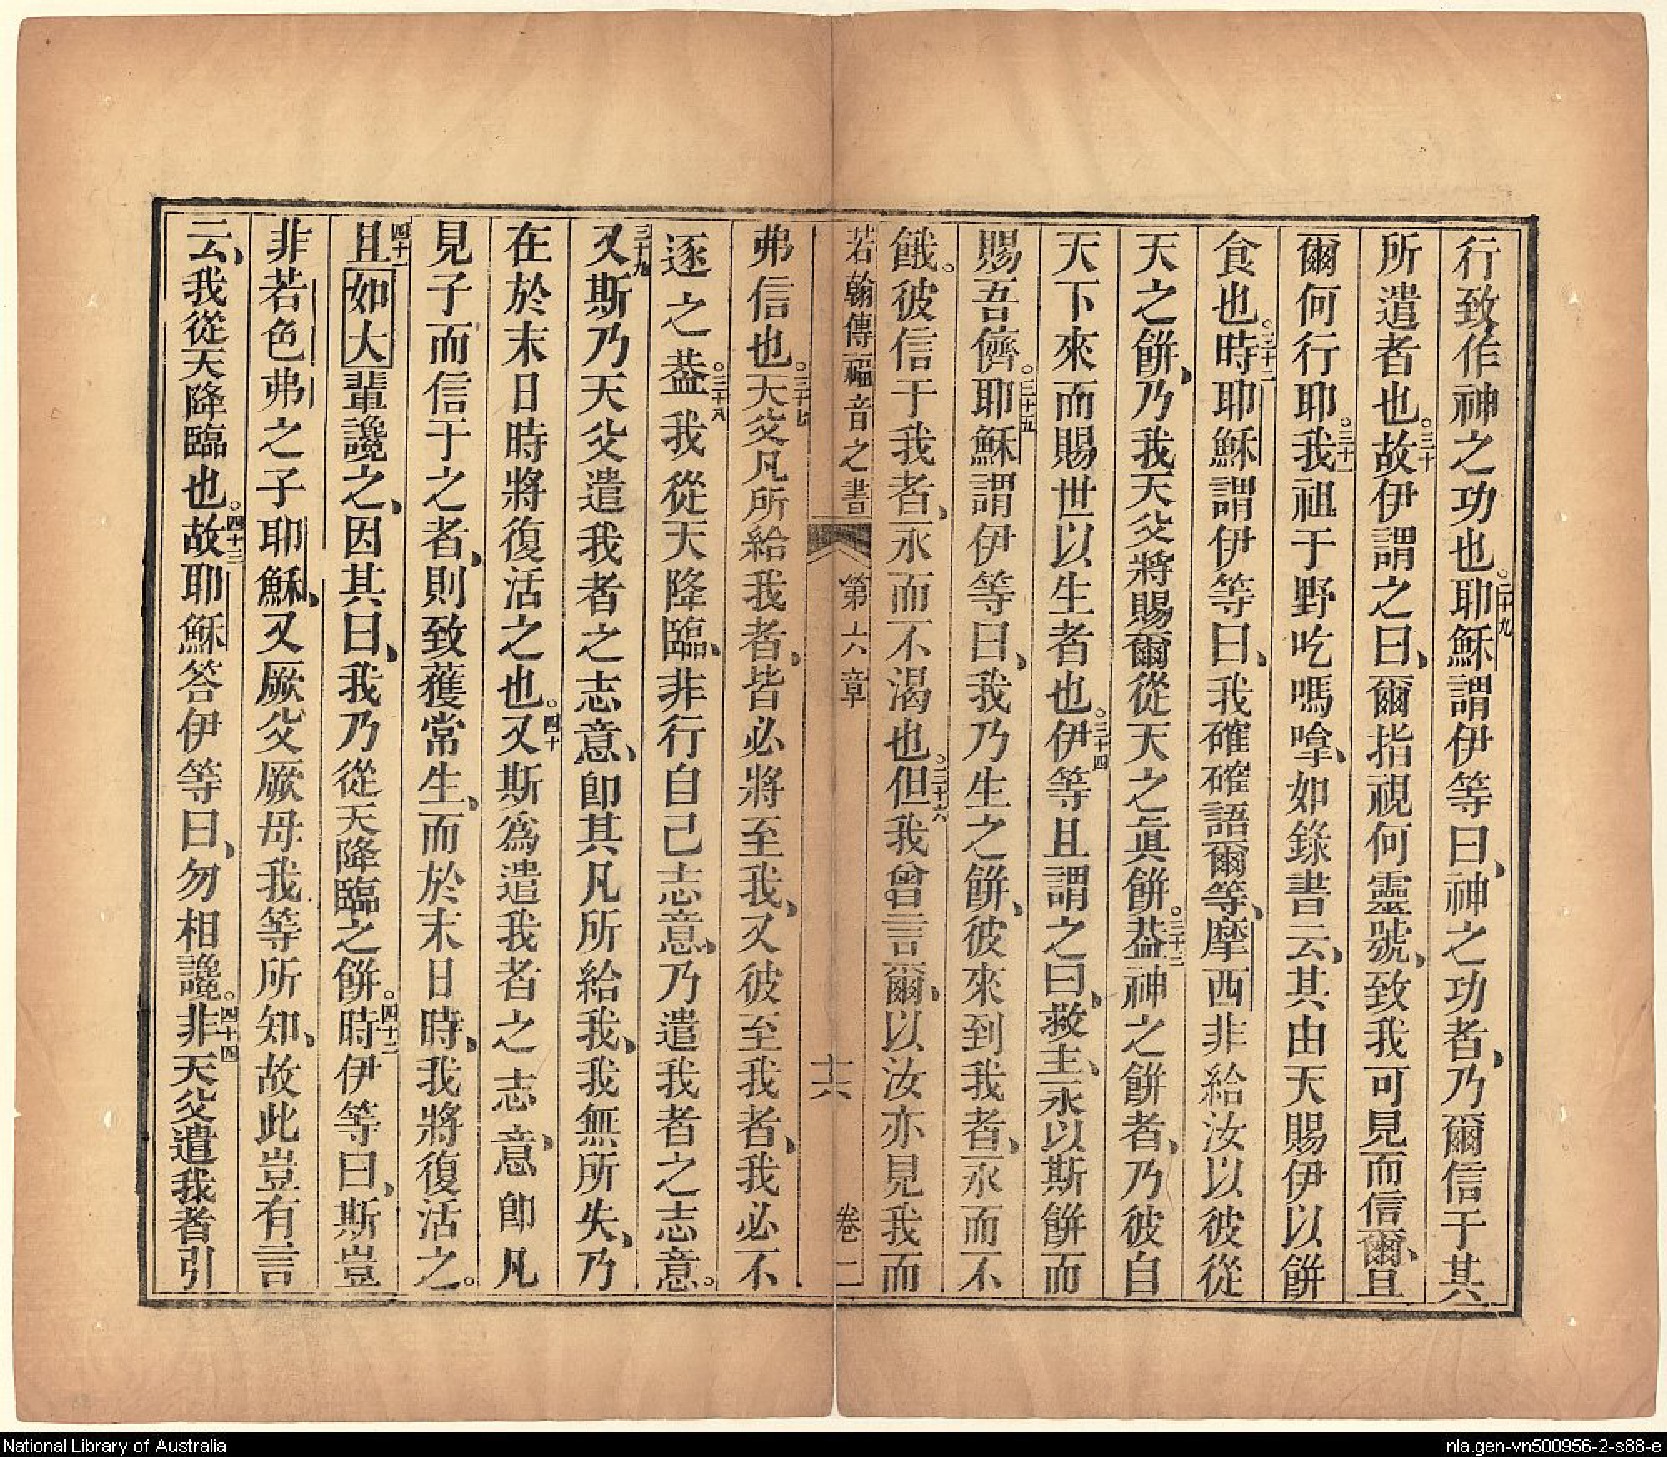 行致作神之功也。二十九耶穌謂伊等曰、神之功者、乃爾信于其
所遣者也。三十故伊謂之曰、爾指視何靈號、致我可見而信爾、且
爾何行耶。三十一我祖于野吃嗎嗱、如錄書云、其由天賜伊以餅
食也。三十二時耶穌謂伊等曰、我確確語爾等、摩西非給汝以彼從
天之餅、乃我天父將賜爾從天之真餅。三十三葢神之餅者、乃彼自
天下來而賜世以生者也。三十四伊等且謂之曰、救主、永以斯餅而
賜吾儕。三十五耶穌謂伊等曰、我乃生之餅、彼來到我者、永而不
餓。彼信于我者、永而不渴也。三十六但我曾言爾、以汝亦見我而
若翰傳福音之書 第六章 十六 卷二
弗信也。三十七天父凡所給我者、皆必將至我、又彼至我者、我必不
逐之。三十八葢我從天降臨、非行自己志意、乃遣我者之志意。
三十九又斯乃天父遣我者之志意、即其凡所給我、我無所失、乃
在於末日時將復活之也。四十又斯為遣我者之志意、即凡
見子而信于之者、則致獲常生、而於末日時、我將復活之。
四十一且如大輩讒之、因其曰、我乃從天降臨之餅。四十二時伊等曰、斯豈
非若色弗之子耶穌、又厥父厥母我等所知、故此豈有言
云、我從天降臨也。四十三故耶穌答伊等曰、勿相讒。四十四非天父遣我者引
National Library of Australia
nla.gen-vn500956-2-s88-e